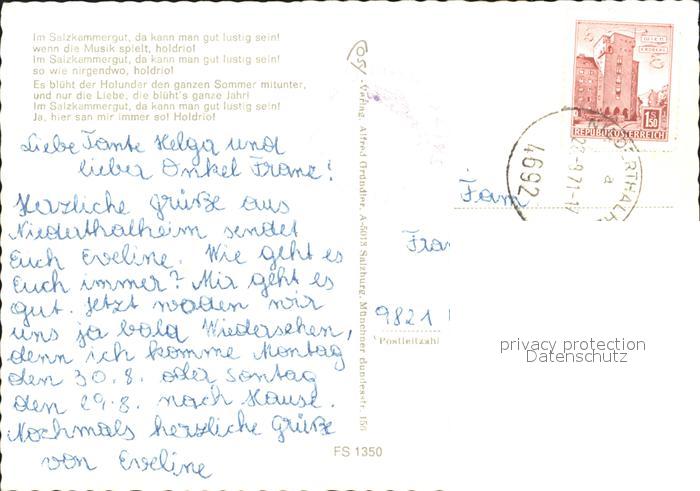 Im Salzkammergut, da kann man gut lustig sein!
wenn die Musik spielt, holdrio!
Im Salzkammergut, da kann man gut lustig sein!
so wie nirgendwo, holdrio!
Es blüht der Holunder den ganzen Sommer mitunter,
und nur die Liebe, die blüht's ganze Jahr!
Im Salzkammergut, da kann man gut lustig sein!
Ja, hier san mir immer so! Holdrio!
Liebe Tante Helga und
lieber Onkel Franz!
Herzliche Grüße aus
Niederthalheim sendet
Euch Eveline. Wie geht es
Euch immer? Mir geht es
gut. Jetzt werden wir
uns ja bald Wiedersehen,
denn ich komme Montag
den 30.8. oder Sonntag
den 29.8. nach Hause.
Nochmals herzliche Grüße
von Eveline
Cosy
Verlag Alfred Gründler, A-5013 Salzburg, Münchner Bundesstr. 150
FS 1350
REPUBLIK ÖSTERREICH
S
1.50
4692
a
Fam
Fran
9821
Postleitzahl
privacy protection
Datenschutz